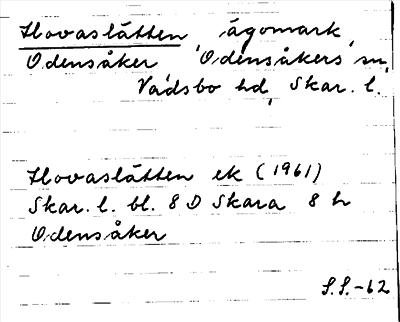 Hovaslätten, ägomark,
Odensåker, Odensåkers sn,
Vadsbo hd, Skar. l.
Hovaslätten ek (1961)
Skar. l. bl. 8 D Skara 8 h
Odensåker
S.S.-62